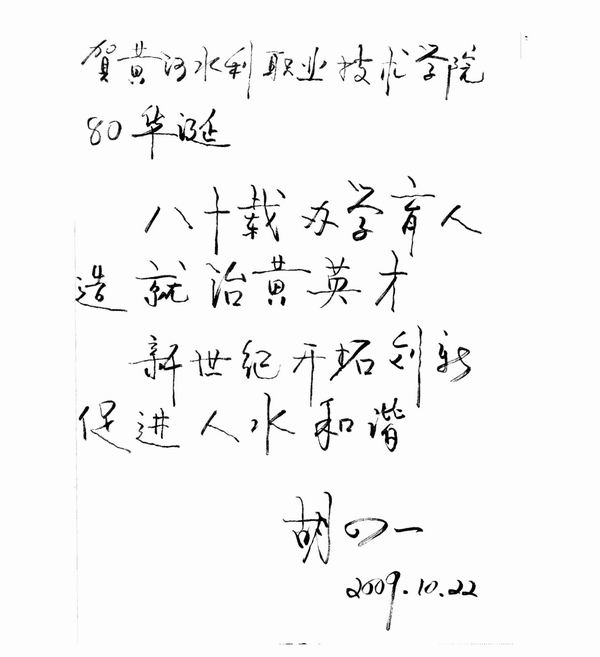 贺黄河水利职业技术学院
80华诞
八十载办学育人
造就治黄英才
新世纪开拓创新
促进人水和谐
胡四一
2009.10.22